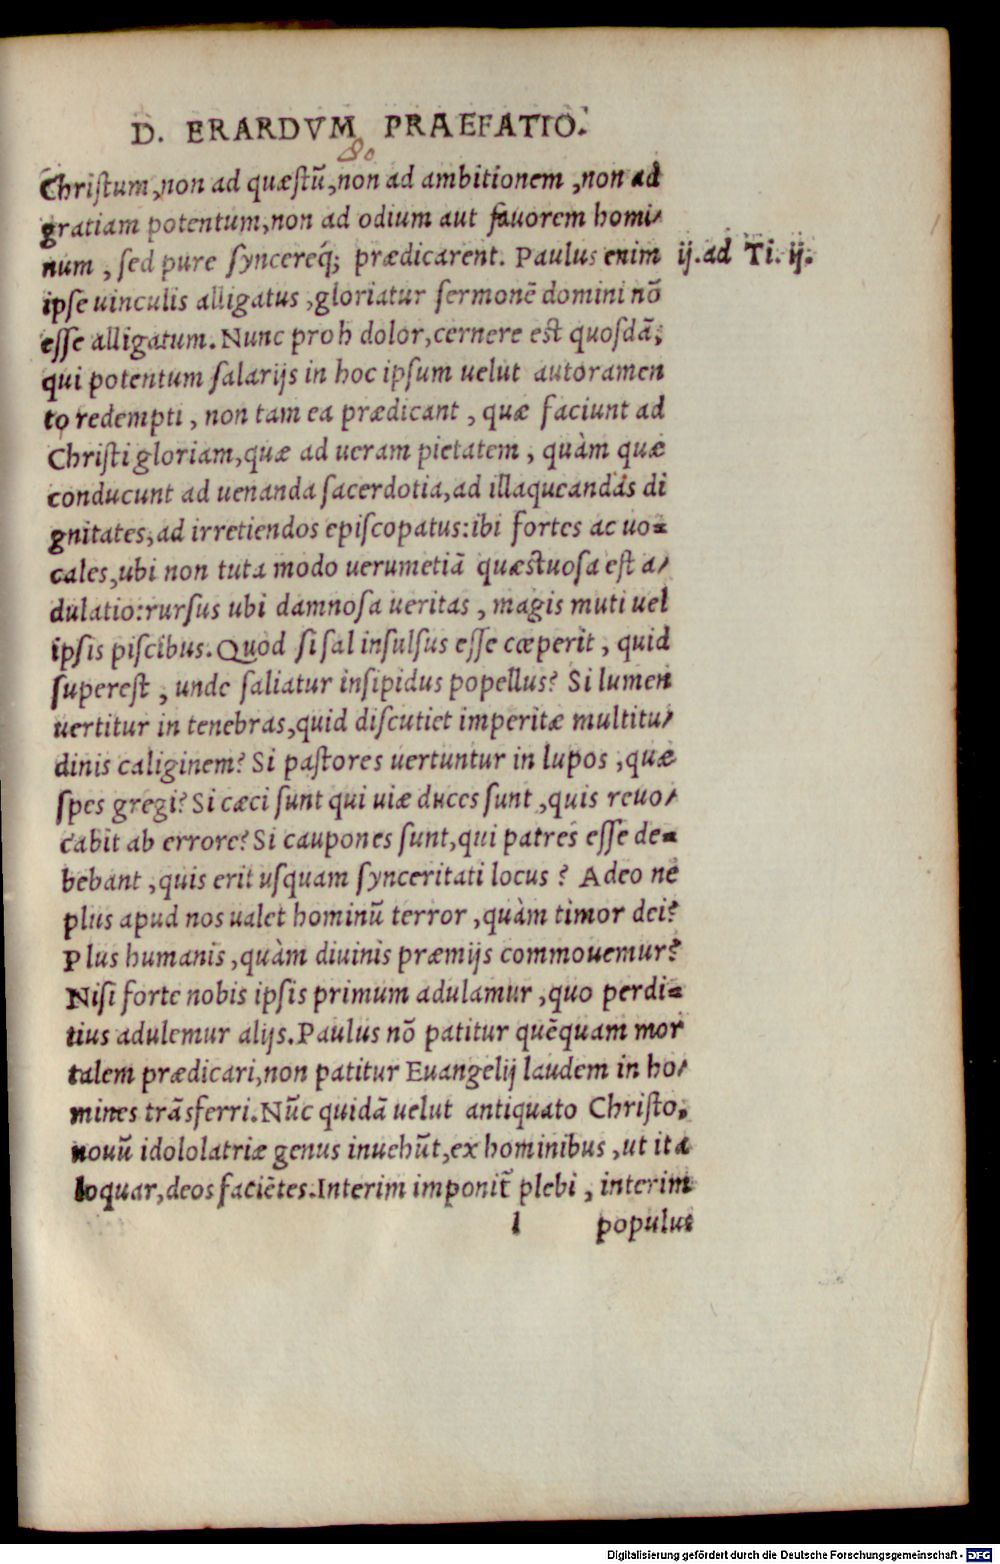 D. ERARDVM PRAEFATIO.
80
Christum, non ad quæstũ, non ad ambitionem, non ad
gratiam potentum, non ad odium aut fauorem homi/
num, sed pure syncereq́; prædicarent. Paulus enim
ij. ad Ti. ij.
ipse uinculis alligatus, gloriatur sermonẽ domini nõ
esse alligatum. Nunc proh dolor, cernere est quosdã,
qui potentum salarijs in hoc ipsum uelut autoramen
to redempti, non tam ea prædicant, quæ faciunt ad
Christi gloriam, quæ ad ueram pietatem, quàm quæ
conducunt ad uenanda sacerdotia, ad illaqueandas di
gnitates, ad irretiendos episcopatus: ibi fortes ac uo=
cales, ubi non tuta modo uerumetiã quæstuosa est a/
dulatio: rursus ubi damnosa ueritas, magis muti uel
ipsis piscibus. Quod si sal insulsus esse cœperit, quid
superest, unde saliatur insipidus popellus? Si lumen
uertitur in tenebras, quid discutiet imperitæ multitu/
dinis caliginem? Si pastores uertuntur in lupos, quæ
spes gregi? Si cæci sunt qui uiæ duces sunt, quis reuo/
cabit ab errore? Si caupones sunt, qui patres esse de=
bebant, quis erit usquam synceritati locus? Adeo ne
plus apud nos ualet hominũ terror, quàm timor dei?
Plus humanis, quàm diuinis præmijs commouemur?
Nisi forte nobis ipsis primum adulamur, quo perdi=
tius adulemur alijs. Paulus nõ patitur quẽquam mor
talem prædicari, non patitur Euangelij laudem in ho/
mines trãsferri. Nũc quidã uelut antiquato Christo,
nouũ idololatriæ genus inuehũt, ex hominibus, ut ita
loquar, deos faciẽtes. Interim imponit̃ plebi, interim
l populus
Digitalisierung gefördert durch die Deutsche Forschungsgemeinschaft - DFG